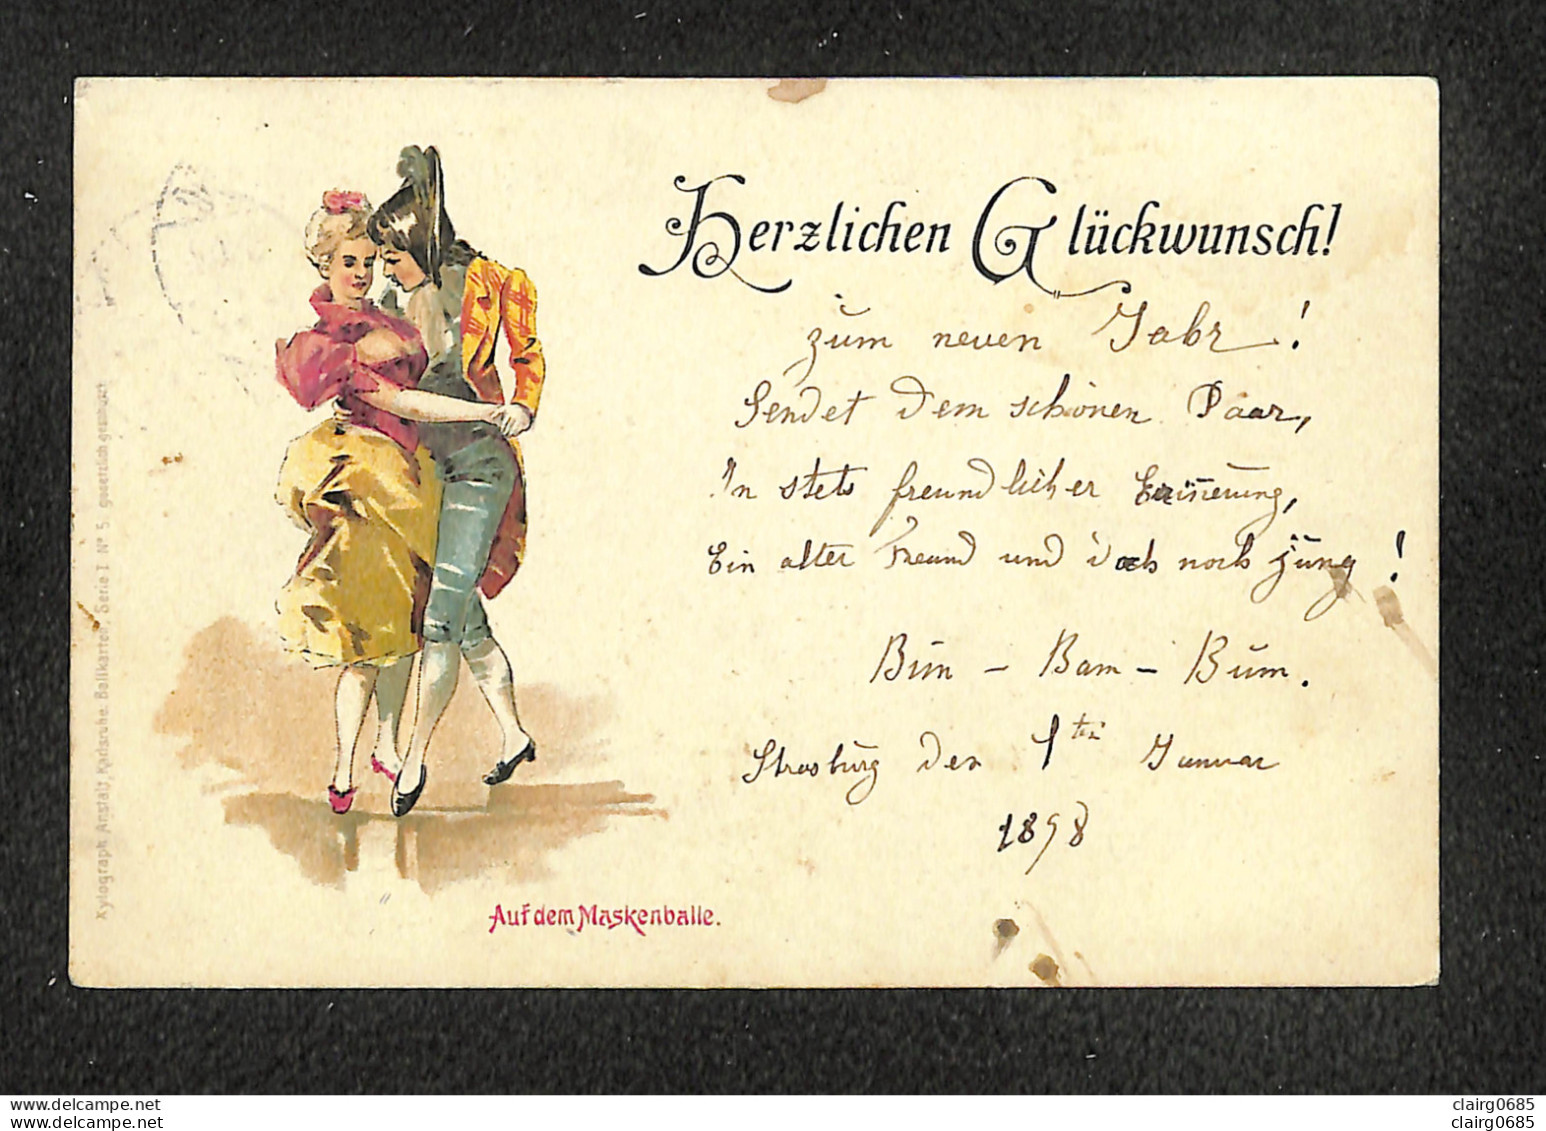 Herzlichen Glückwunsch!
zum neuen Jahr!
Sendet dem schönen Paar,
In stets freundlicher Erinnerung,
Ein alter Freund und doch noch jung!
Bim - Bam - Bum.
Strasburg den 1ten Januar
1898
Auf dem Maskenballe.
Xylograph. Anstalt, Karlsruhe. Ballkarten. Serie I Nº 5. gesetzlich geschützt
www.delcampe.net
clairg0685
clairg0685